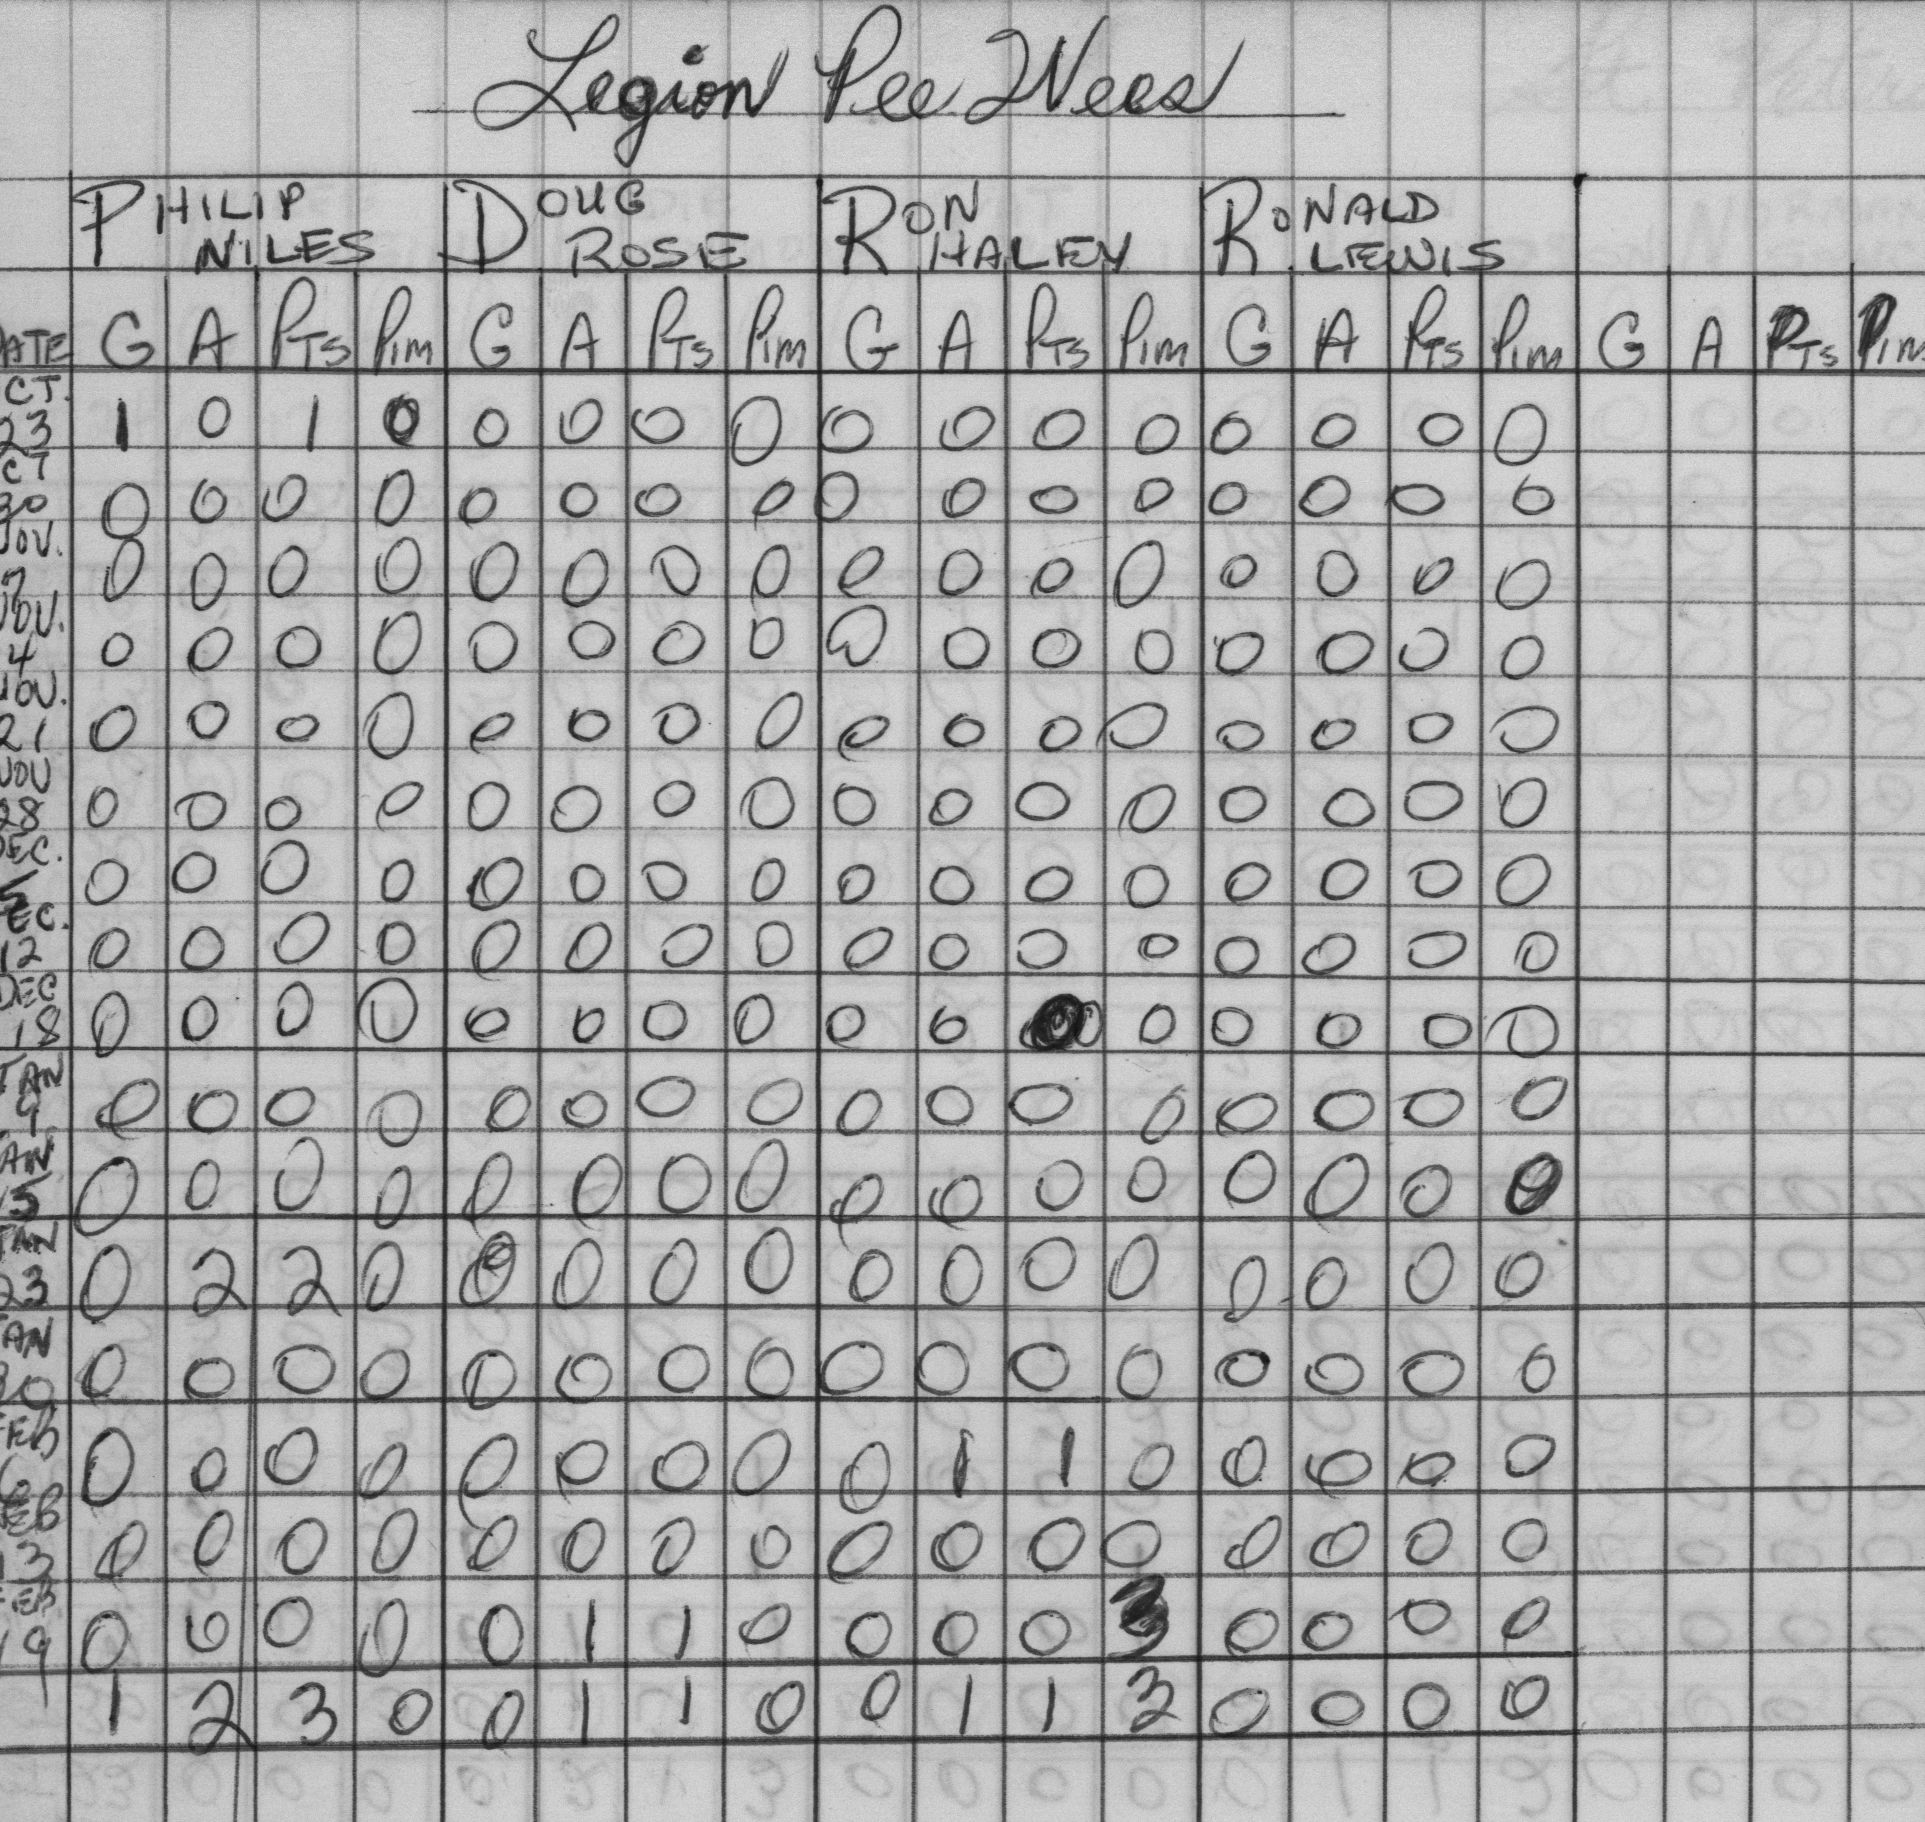 Legion Pee Wees
PHILIP NILES DOUG ROSE RON HALEY RONALD LEWIS
DATE G A PTS PIM G A PTS PIM G A PTS PIM G A PTS PIM G A PTS PIM
CT. 23 1 0 1 0 0 0 0 0 0 0 0 0 0 0 0 0
CT 30 0 0 0 0 0 0 0 0 0 0 0 0 0 0 0 0
NOV. 7 0 0 0 0 0 0 0 0 0 0 0 0 0 0 0 0
NOV. 4 0 0 0 0 0 0 0 0 0 0 0 0 0 0 0 0
NOV. 21 0 0 0 0 0 0 0 0 0 0 0 0 0 0 0 0
NOV 28 0 0 0 0 0 0 0 0 0 0 0 0 0 0 0 0
DEC. 5 0 0 0 0 0 0 0 0 0 0 0 0 0 0 0 0
DEC. 12 0 0 0 0 0 0 0 0 0 0 0 0 0 0 0 0
DEC 18 0 0 0 0 0 0 0 0 0 0 0 0 0 0 0 0
JAN 9 0 0 0 0 0 0 0 0 0 0 0 0 0 0 0 0
JAN 15 0 0 0 0 0 0 0 0 0 0 0 0 0 0 0 0
JAN 23 0 2 2 0 0 0 0 0 0 0 0 0 0 0 0 0
JAN 30 0 0 0 0 0 0 0 0 0 0 0 0 0 0 0 0
FEB 0 0 0 0 0 0 0 0 0 1 1 0 0 0 0 0
FEB 13 0 0 0 0 0 0 0 0 0 0 0 0 0 0 0 0
FEB 19 0 0 0 0 0 1 1 0 0 0 0 3 0 0 0 0
1 2 3 0 0 1 1 0 0 1 1 3 0 0 0 0